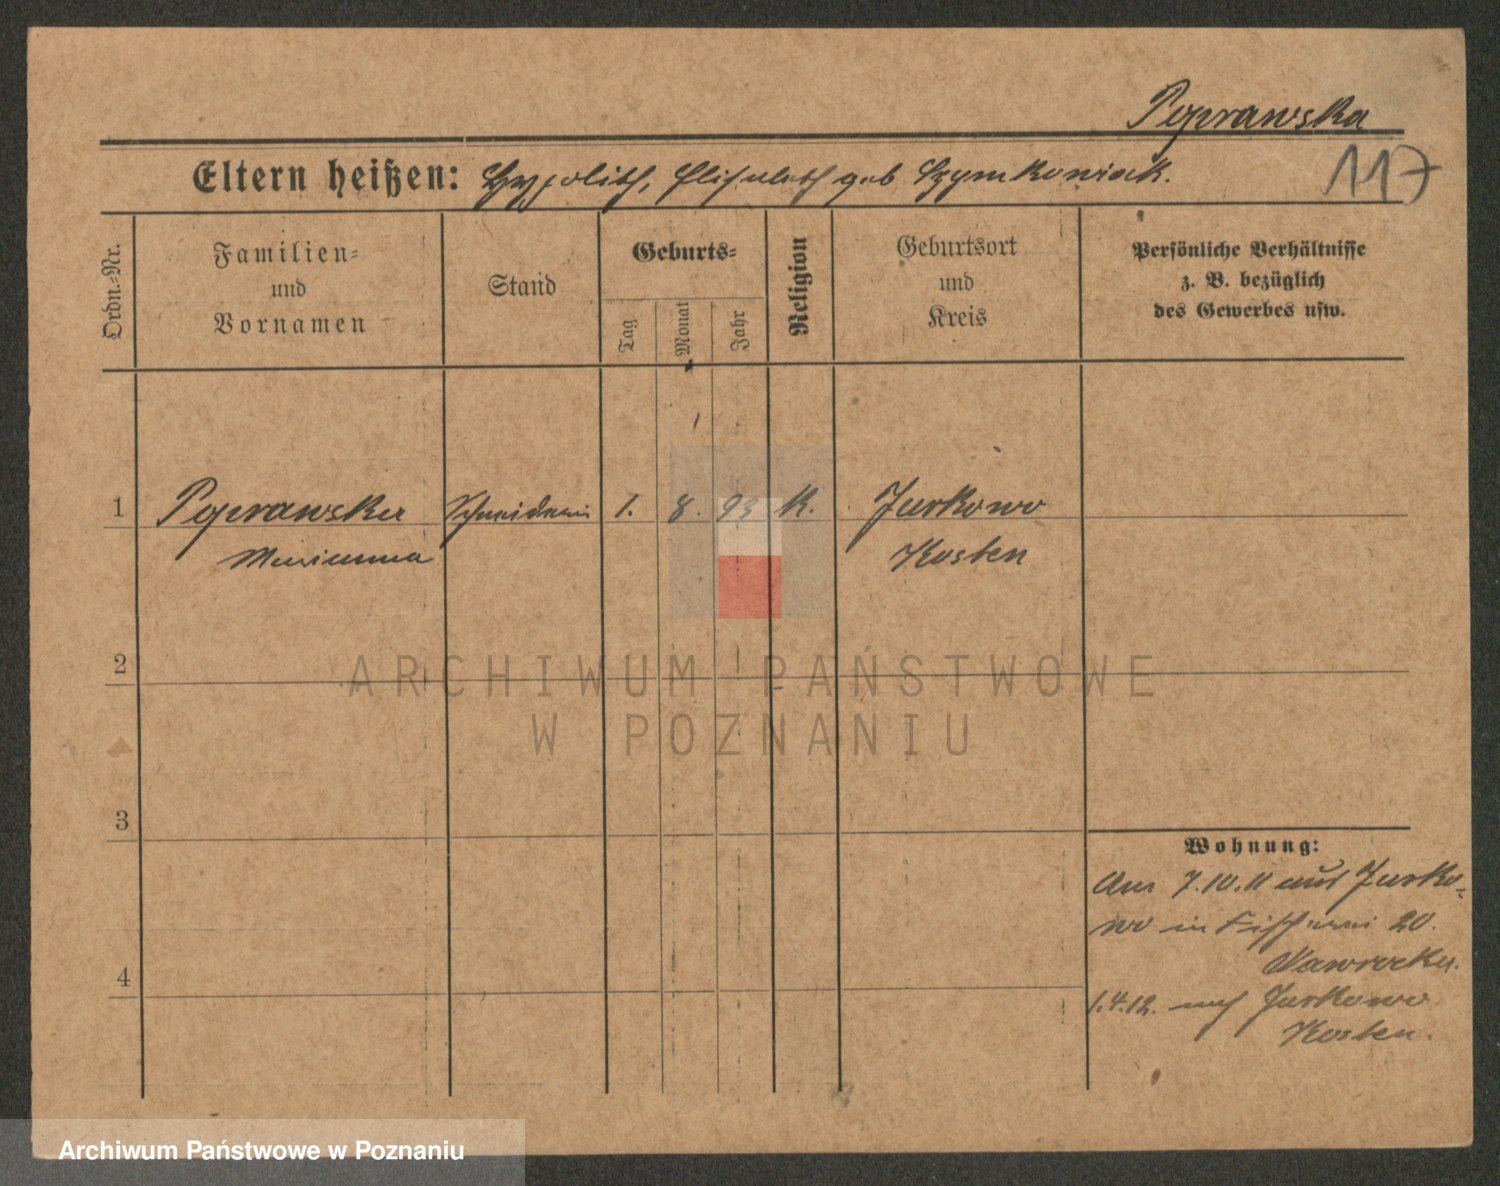 Poprawska
117
Eltern heißen: Hypolith, Elisabeth geb Szymkowiak.
Ordn.-Nr.
Familien-
und
Vornamen
Stand
Geburts-
Tag
Monat
Jahr
Religion
Geburtsort
und
Kreis
Persönliche Verhältnisse
z. B. bezüglich
des Gewerbes usw.
1 Poprawska Schneiderin 1. 8. 93 K. Jurkowo
Marianna Kosten
2
3
4
Wohnung:
Am 7.10.11 aus Jurko-
wo in Fischerei 20.
Nawrocka.
1.4.12. nach Jurkowo
Kosten.
ARCHIWUM PAŃSTWOWE
W POZNANIU
Archiwum Państwowe w Poznaniu